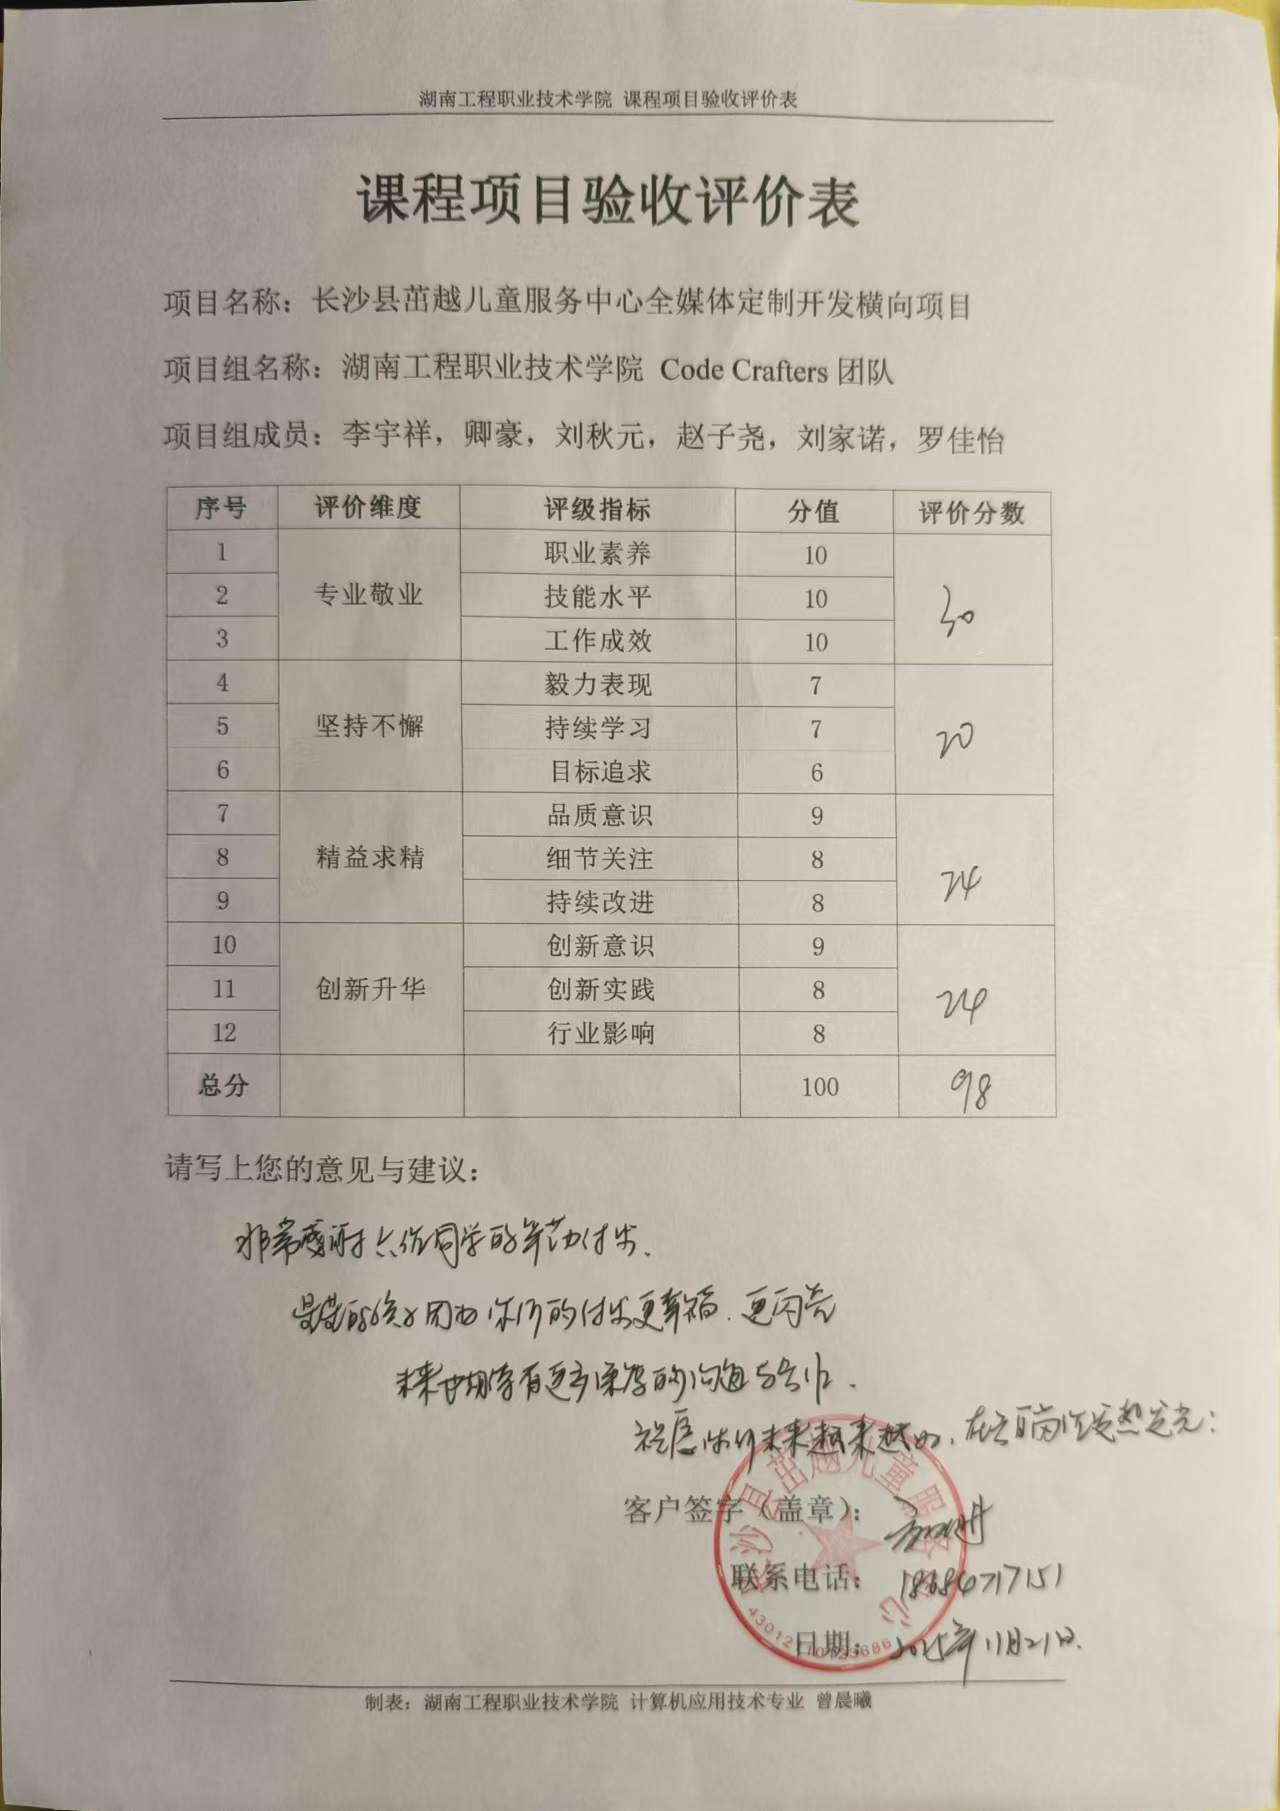 湖南工程职业技术学院 课程项目验收评价表
课程项目验收评价表
项目名称：长沙县茁越儿童服务中心全媒体定制开发横向项目
项目组名称：湖南工程职业技术学院 Code Crafters 团队
项目组成员：李宇祥，卿豪，刘秋元，赵子尧，刘家诺，罗佳怡
序号 评价维度 评级指标 分值 评价分数
1 专业敬业 职业素养 10 30
2 技能水平 10
3 工作成效 10
4 坚持不懈 毅力表现 7 20
5 持续学习 7
6 目标追求 6
7 精益求精 品质意识 9 24
8 细节关注 8
9 持续改进 8
10 创新升华 创新意识 9 24
11 创新实践 8
12 行业影响 8
总分 100 98
请写上您的意见与建议：
非常感谢六位同学的辛勤付出.
的孩子因为你们的付出更幸福.更闪亮
未来也期待有更多深度的沟通与合作.
祝愿你们未来越来越好,在各自岗位发热发光;
客户签字（盖章）：
联系电话：18684717151
日期：2025年11月21日.
长沙县茁越儿童服务中心
制表：湖南工程职业技术学院 计算机应用技术专业 曾晨曦